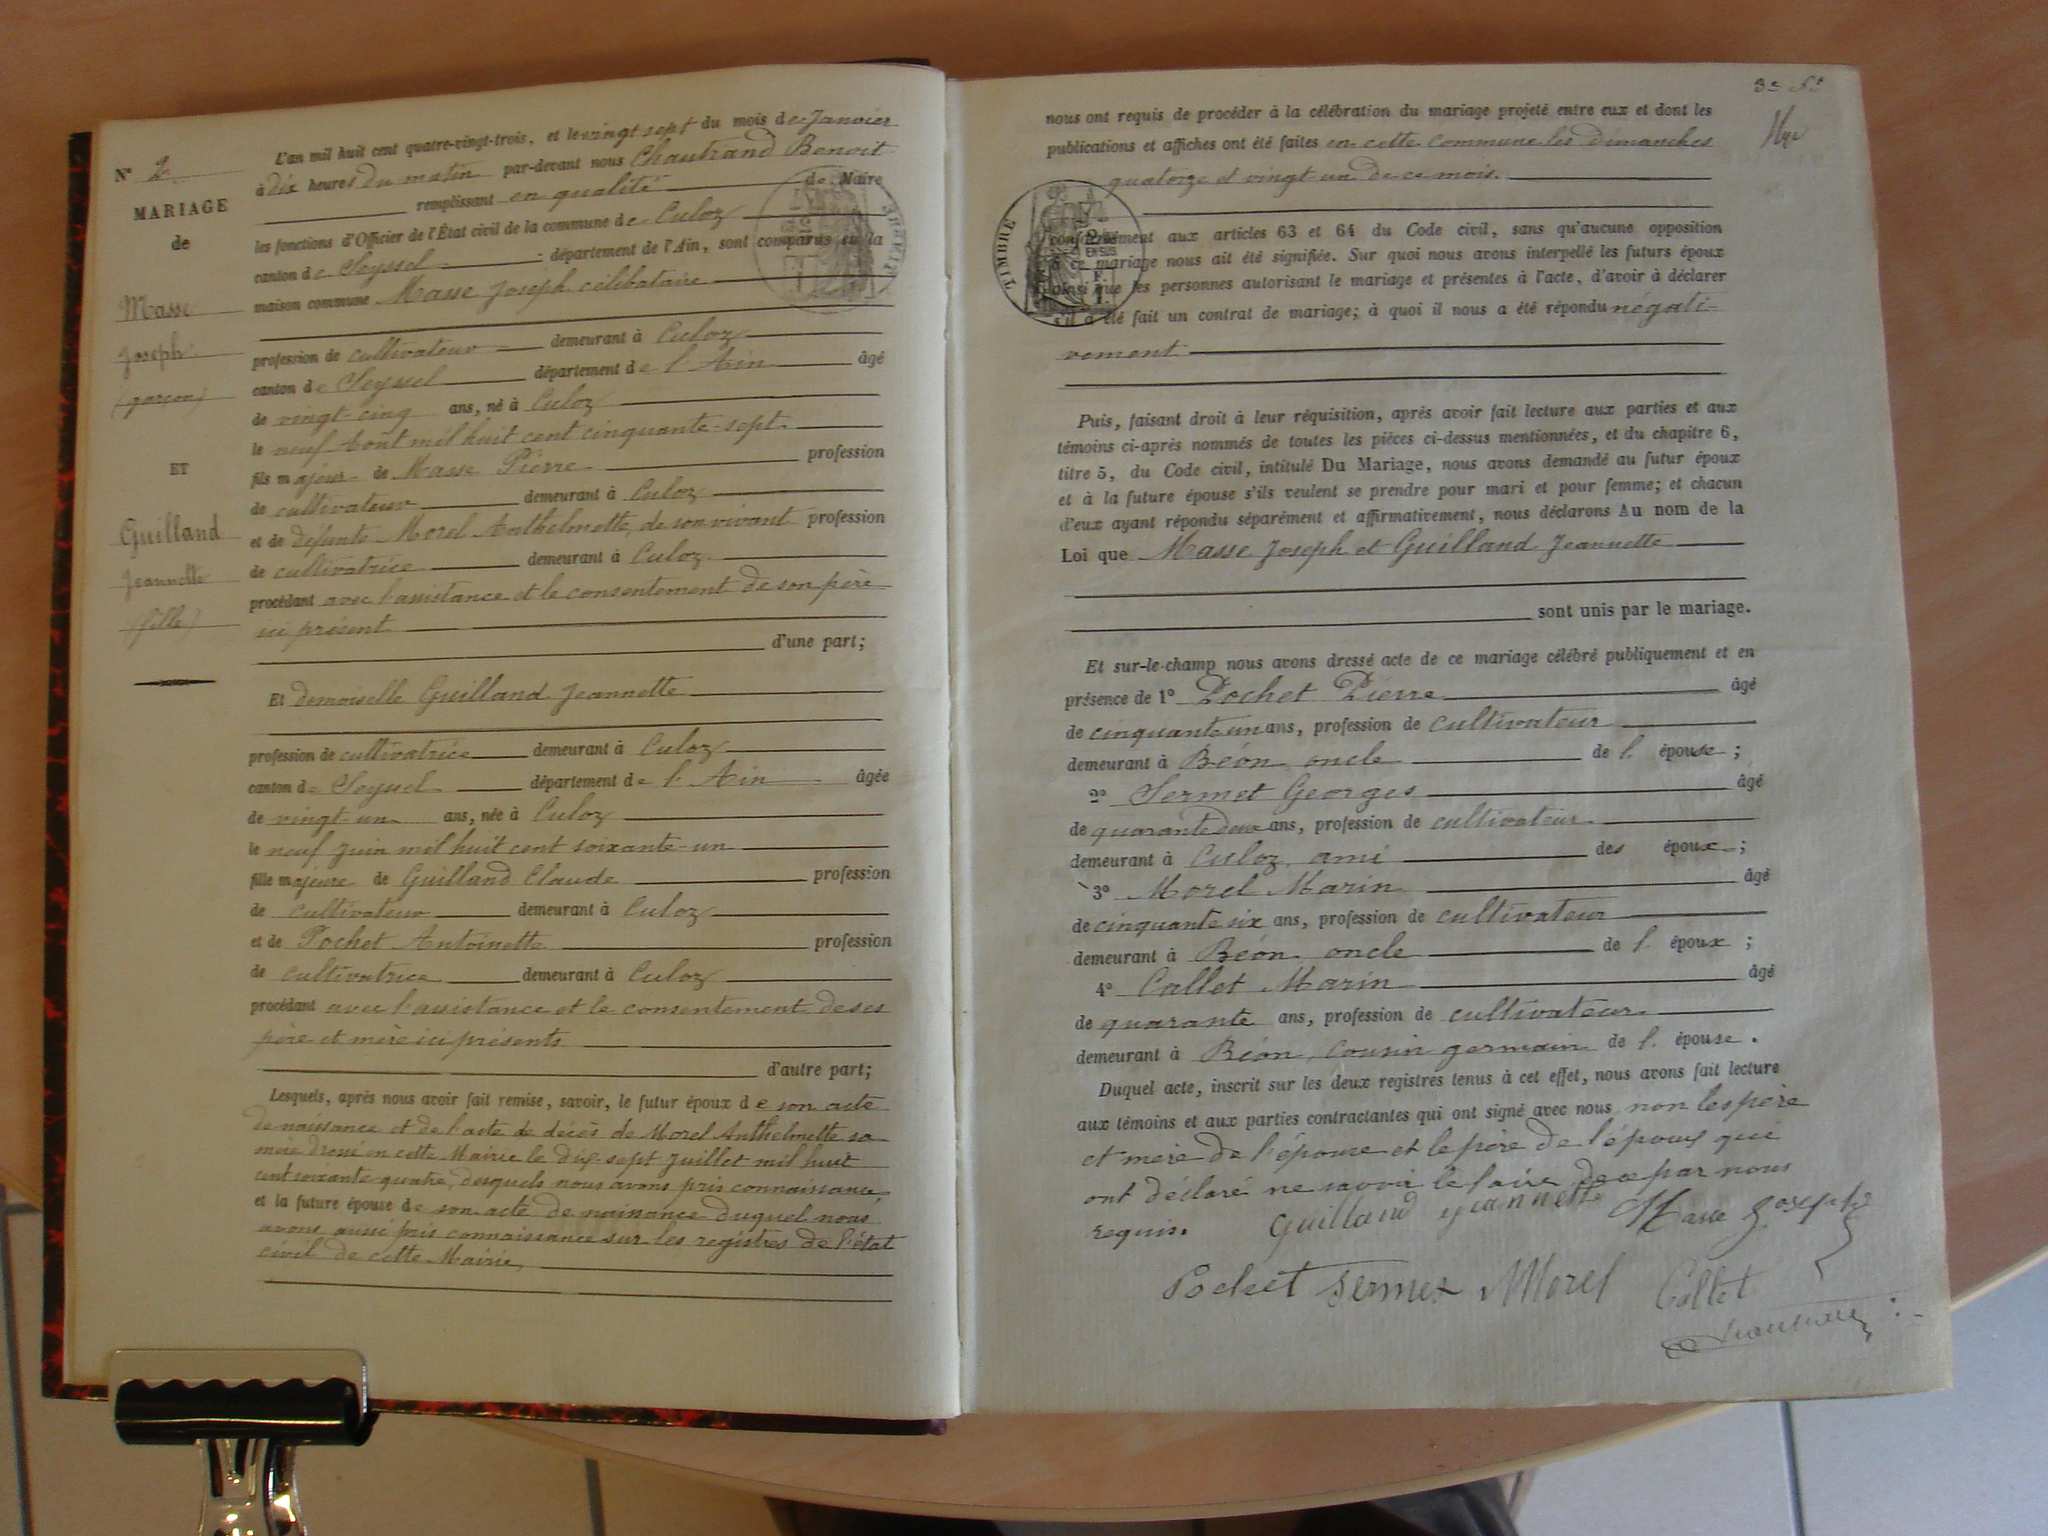 N° 2
MARIAGE
de
Masse
Joseph
(garçon)
ET
Guilland
Jeannette
(fille)
L'an mil huit cent quatre-vingt-trois, et le vingt sept du mois de Janvier
à dix heures du matin par-devant nous Chautrand Benoit
remplissant en qualité de Maire
les fonctions d'Officier de l'État civil de la commune de Culoz
canton de Seyssel département de l'Ain, sont comparus en la
maison commune Masse Joseph célibataire
profession de cultivateur demeurant à Culoz
canton de Seyssel département de l'Ain âgé
de vingt-cinq ans, né à Culoz
le neuf Août mil huit cent cinquante-sept
fils majeur de Masse Pierre profession
de cultivateur demeurant à Culoz
et de défunte Morel Anthelmette, de son vivant profession
de cultivatrice demeurant à Culoz
procédant avec l'assistance et le consentement de son père
ici présent
d'une part;
Et demoiselle Guilland Jeannette
profession de cultivatrice demeurant à Culoz
canton de Seyssel département de l'Ain âgée
de vingt un ans, née à Culoz
le neuf Juin mil huit cent soixante-un
fille majeure de Guilland Claude profession
de cultivateur demeurant à Culoz
et de Pochet Antoinette profession
de cultivatrice demeurant à Culoz
procédant avec l'assistance et le consentement de ses
père et mère ici présents
d'autre part;
Lesquels, après nous avoir fait remise, savoir, le futur époux de son acte
de naissance et de l'acte de décès de Morel Anthelmette sa
mère dressé en cette Mairie le dix-sept Juillet mil huit
cent soixante quatre, desquels nous avons pris connaissance,
et la future épouse de son acte de naissance duquel nous
avons aussi pris connaissance sur les registres de l'état
civil de cette Mairie,
nous ont requis de procéder à la célébration du mariage projeté entre eux et dont les
publications et affiches ont été faites en cette commune les dimanches
quatorze et vingt un de ce mois.
TIMBRE
conformément aux articles 63 et 64 du Code civil, sans qu'aucune opposition
à ce mariage nous ait été signifiée. Sur quoi nous avons interpellé les futurs époux
ainsi que les personnes autorisant le mariage et présentes à l'acte, d'avoir à déclarer
s'il a été fait un contrat de mariage; à quoi il nous a été répondu négati-
vement
Puis, faisant droit à leur réquisition, après avoir fait lecture aux parties et aux
témoins ci-après nommés de toutes les pièces ci-dessus mentionnées, et du chapitre 6,
titre 5, du Code civil, intitulé Du Mariage, nous avons demandé au futur époux
et à la future épouse s'ils veulent se prendre pour mari et pour femme; et chacun
d'eux ayant répondu séparément et affirmativement, nous déclarons Au nom de la
Loi que Masse Joseph et Guilland Jeannette
sont unis par le mariage.
Et sur-le-champ nous avons dressé acte de ce mariage célébré publiquement et en
présence de 1° Pochet Pierre âgé
de cinquante un ans, profession de cultivateur
demeurant à Béon, oncle de l' épouse;
2° Sermet Georges âgé
de quarante deux ans, profession de cultivateur
demeurant à Culoz, ami des époux;
3° Morel Marin âgé
de cinquante six ans, profession de cultivateur
demeurant à Béon, oncle de l' époux;
4° Callet Marin âgé
de quarante ans, profession de cultivateur
demeurant à Béon, cousin germain de l' épouse.
Duquel acte, inscrit sur les deux registres tenus à cet effet, nous avons fait lecture
aux témoins et aux parties contractantes qui ont signé avec nous, non les père
et mère de l'épouse et le père de l'époux qui
ont déclaré ne savoir le faire de ce par nous
requis.
Guilland Jeannette Masse Joseph
Pochet Sermet Morel Callet